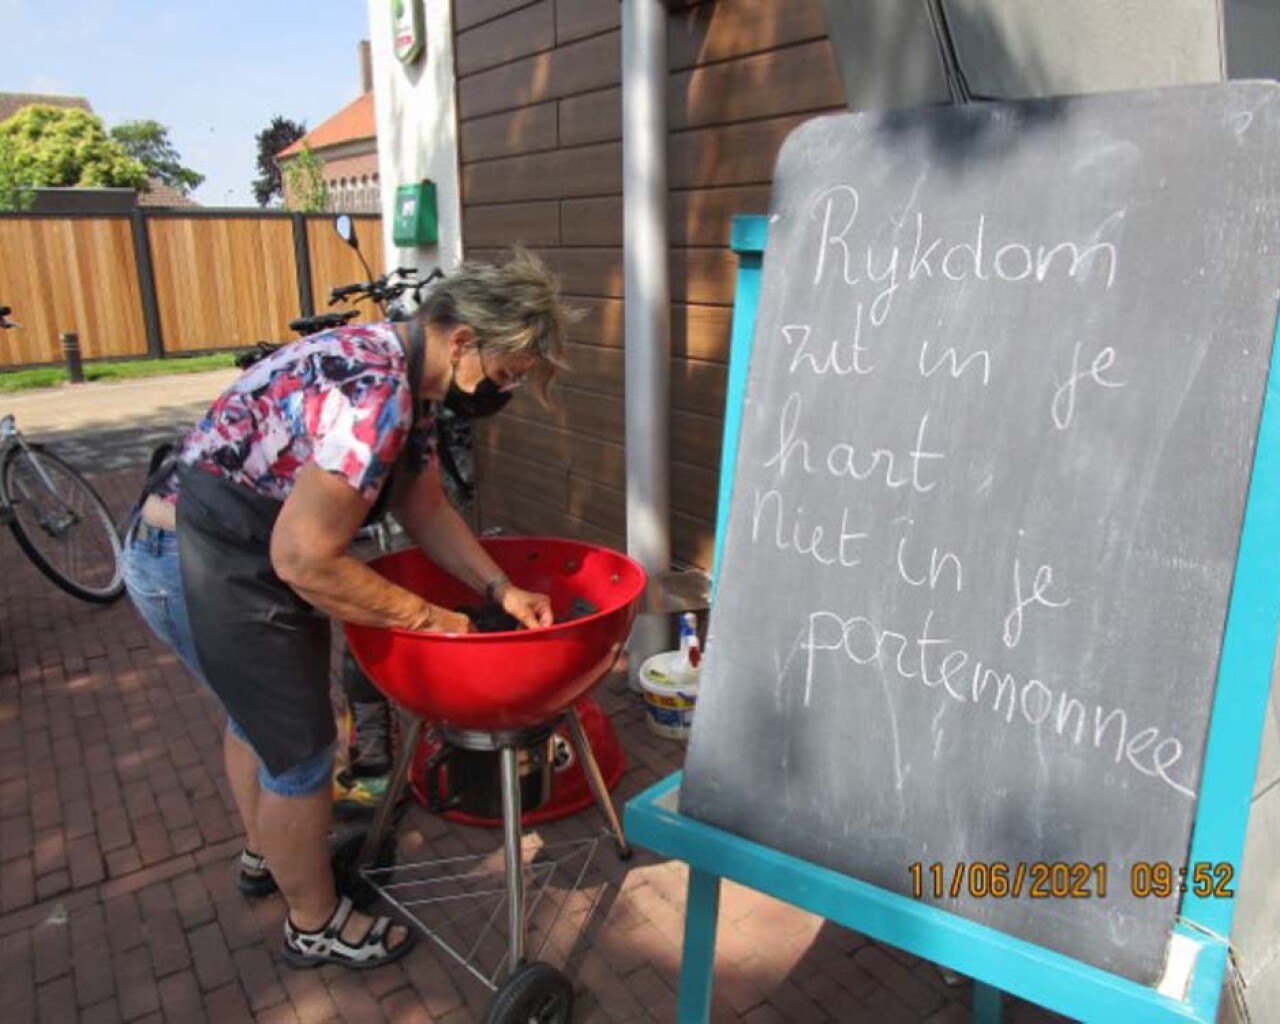 Rijkdom
zit in je
hart
Niet in je
portemonnee
11/06/2021 09:52